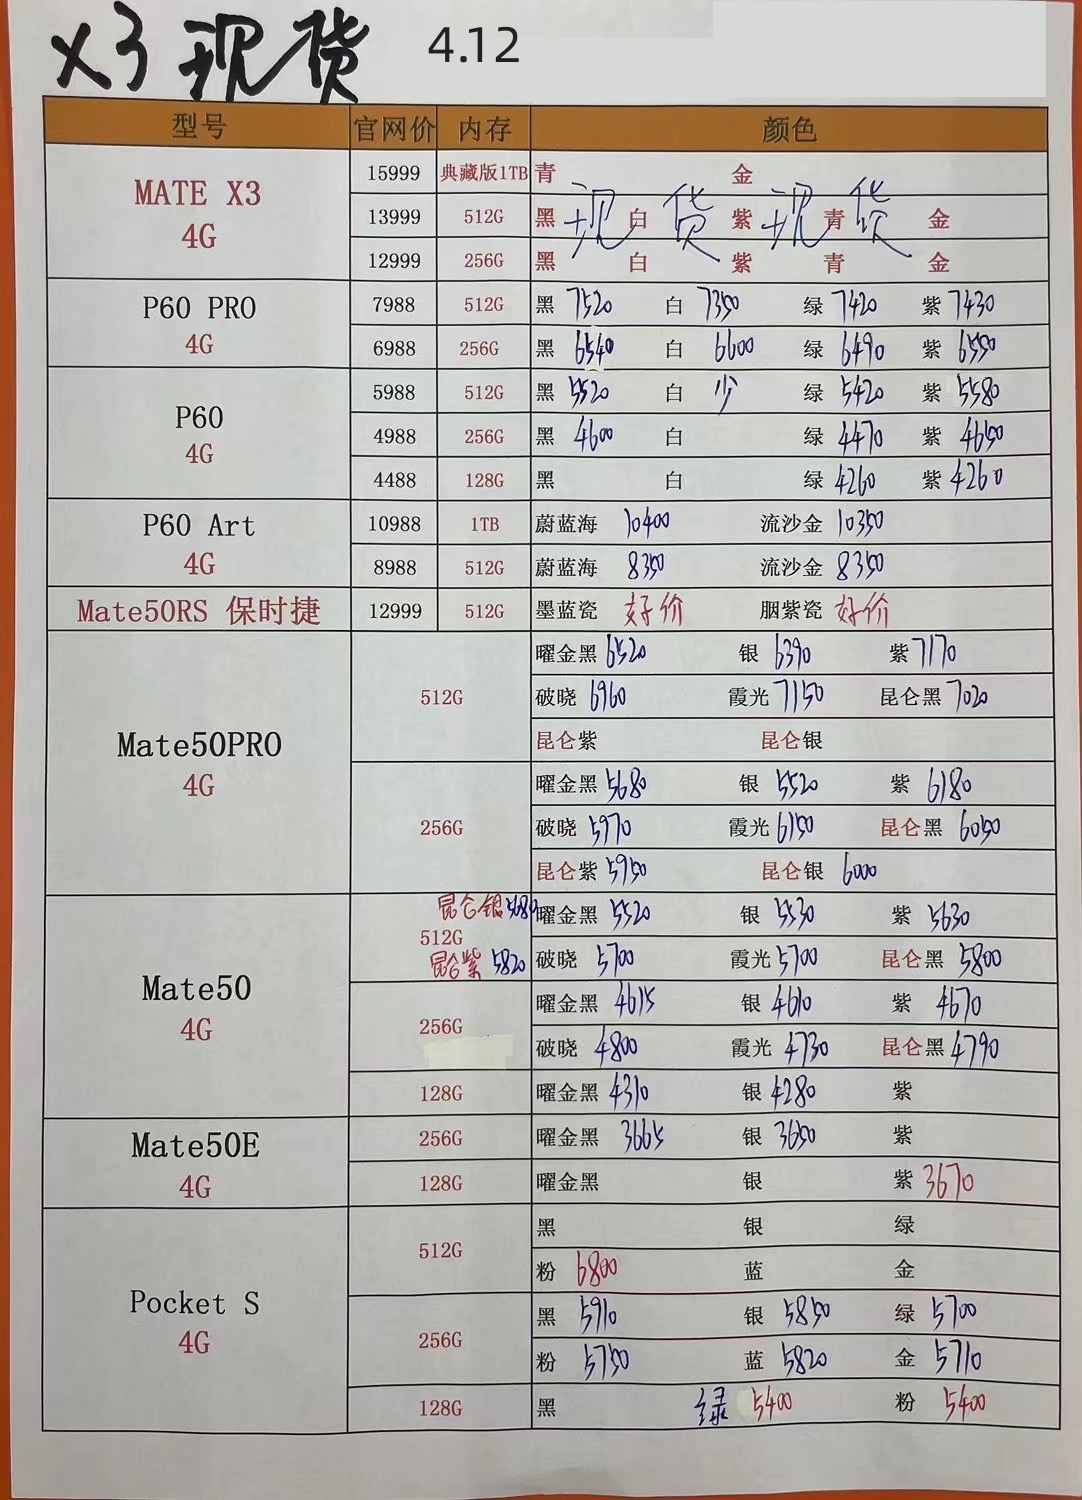 X3现货 4.12
型号 官网价 内存 颜色
MATE X3 4G
15999 典藏版1TB 青 金
13999 512G 黑 白 紫 青 金
现货 现货
12999 256G 黑 白 紫 青 金
P60 PRO 4G
7988 512G 黑 7520 白 7350 绿 7420 紫 7430
6988 256G 黑 6540 白 6600 绿 6490 紫 6550
P60 4G
5988 512G 黑 5520 白 少 绿 5420 紫 5580
4988 256G 黑 4600 白 绿 4470 紫 4650
4488 128G 黑 白 绿 4260 紫 4260
P60 Art 4G
10988 1TB 蔚蓝海 10400 流沙金 10350
8988 512G 蔚蓝海 8350 流沙金 8350
Mate50RS 保时捷 12999 512G 墨蓝瓷 好价 胭紫瓷 好价
Mate50PRO 4G
512G
曜金黑 6520 银 6390 紫 7170
破晓 6960 霞光 7150 昆仑黑 7020
昆仑紫 昆仑银
256G
曜金黑 5680 银 5520 紫 6180
破晓 5970 霞光 6150 昆仑黑 6050
昆仑紫 5950 昆仑银 6000
Mate50 4G
昆仑银
512G
昆仑紫 5820
曜金黑 5520 银 5530 紫 5630
破晓 5700 霞光 5700 昆仑黑 5800
256G
曜金黑 4615 银 4610 紫 4670
破晓 4800 霞光 4730 昆仑黑 4790
128G 曜金黑 4310 银 4280 紫
Mate50E 4G
256G 曜金黑 3665 银 3650 紫
128G 曜金黑 银 紫 3670
Pocket S 4G
512G
黑 银 绿
粉 6800 蓝 金
256G
黑 5910 银 5850 绿 5700
粉 5750 蓝 5820 金 5710
128G 黑 绿 5400 粉 5400